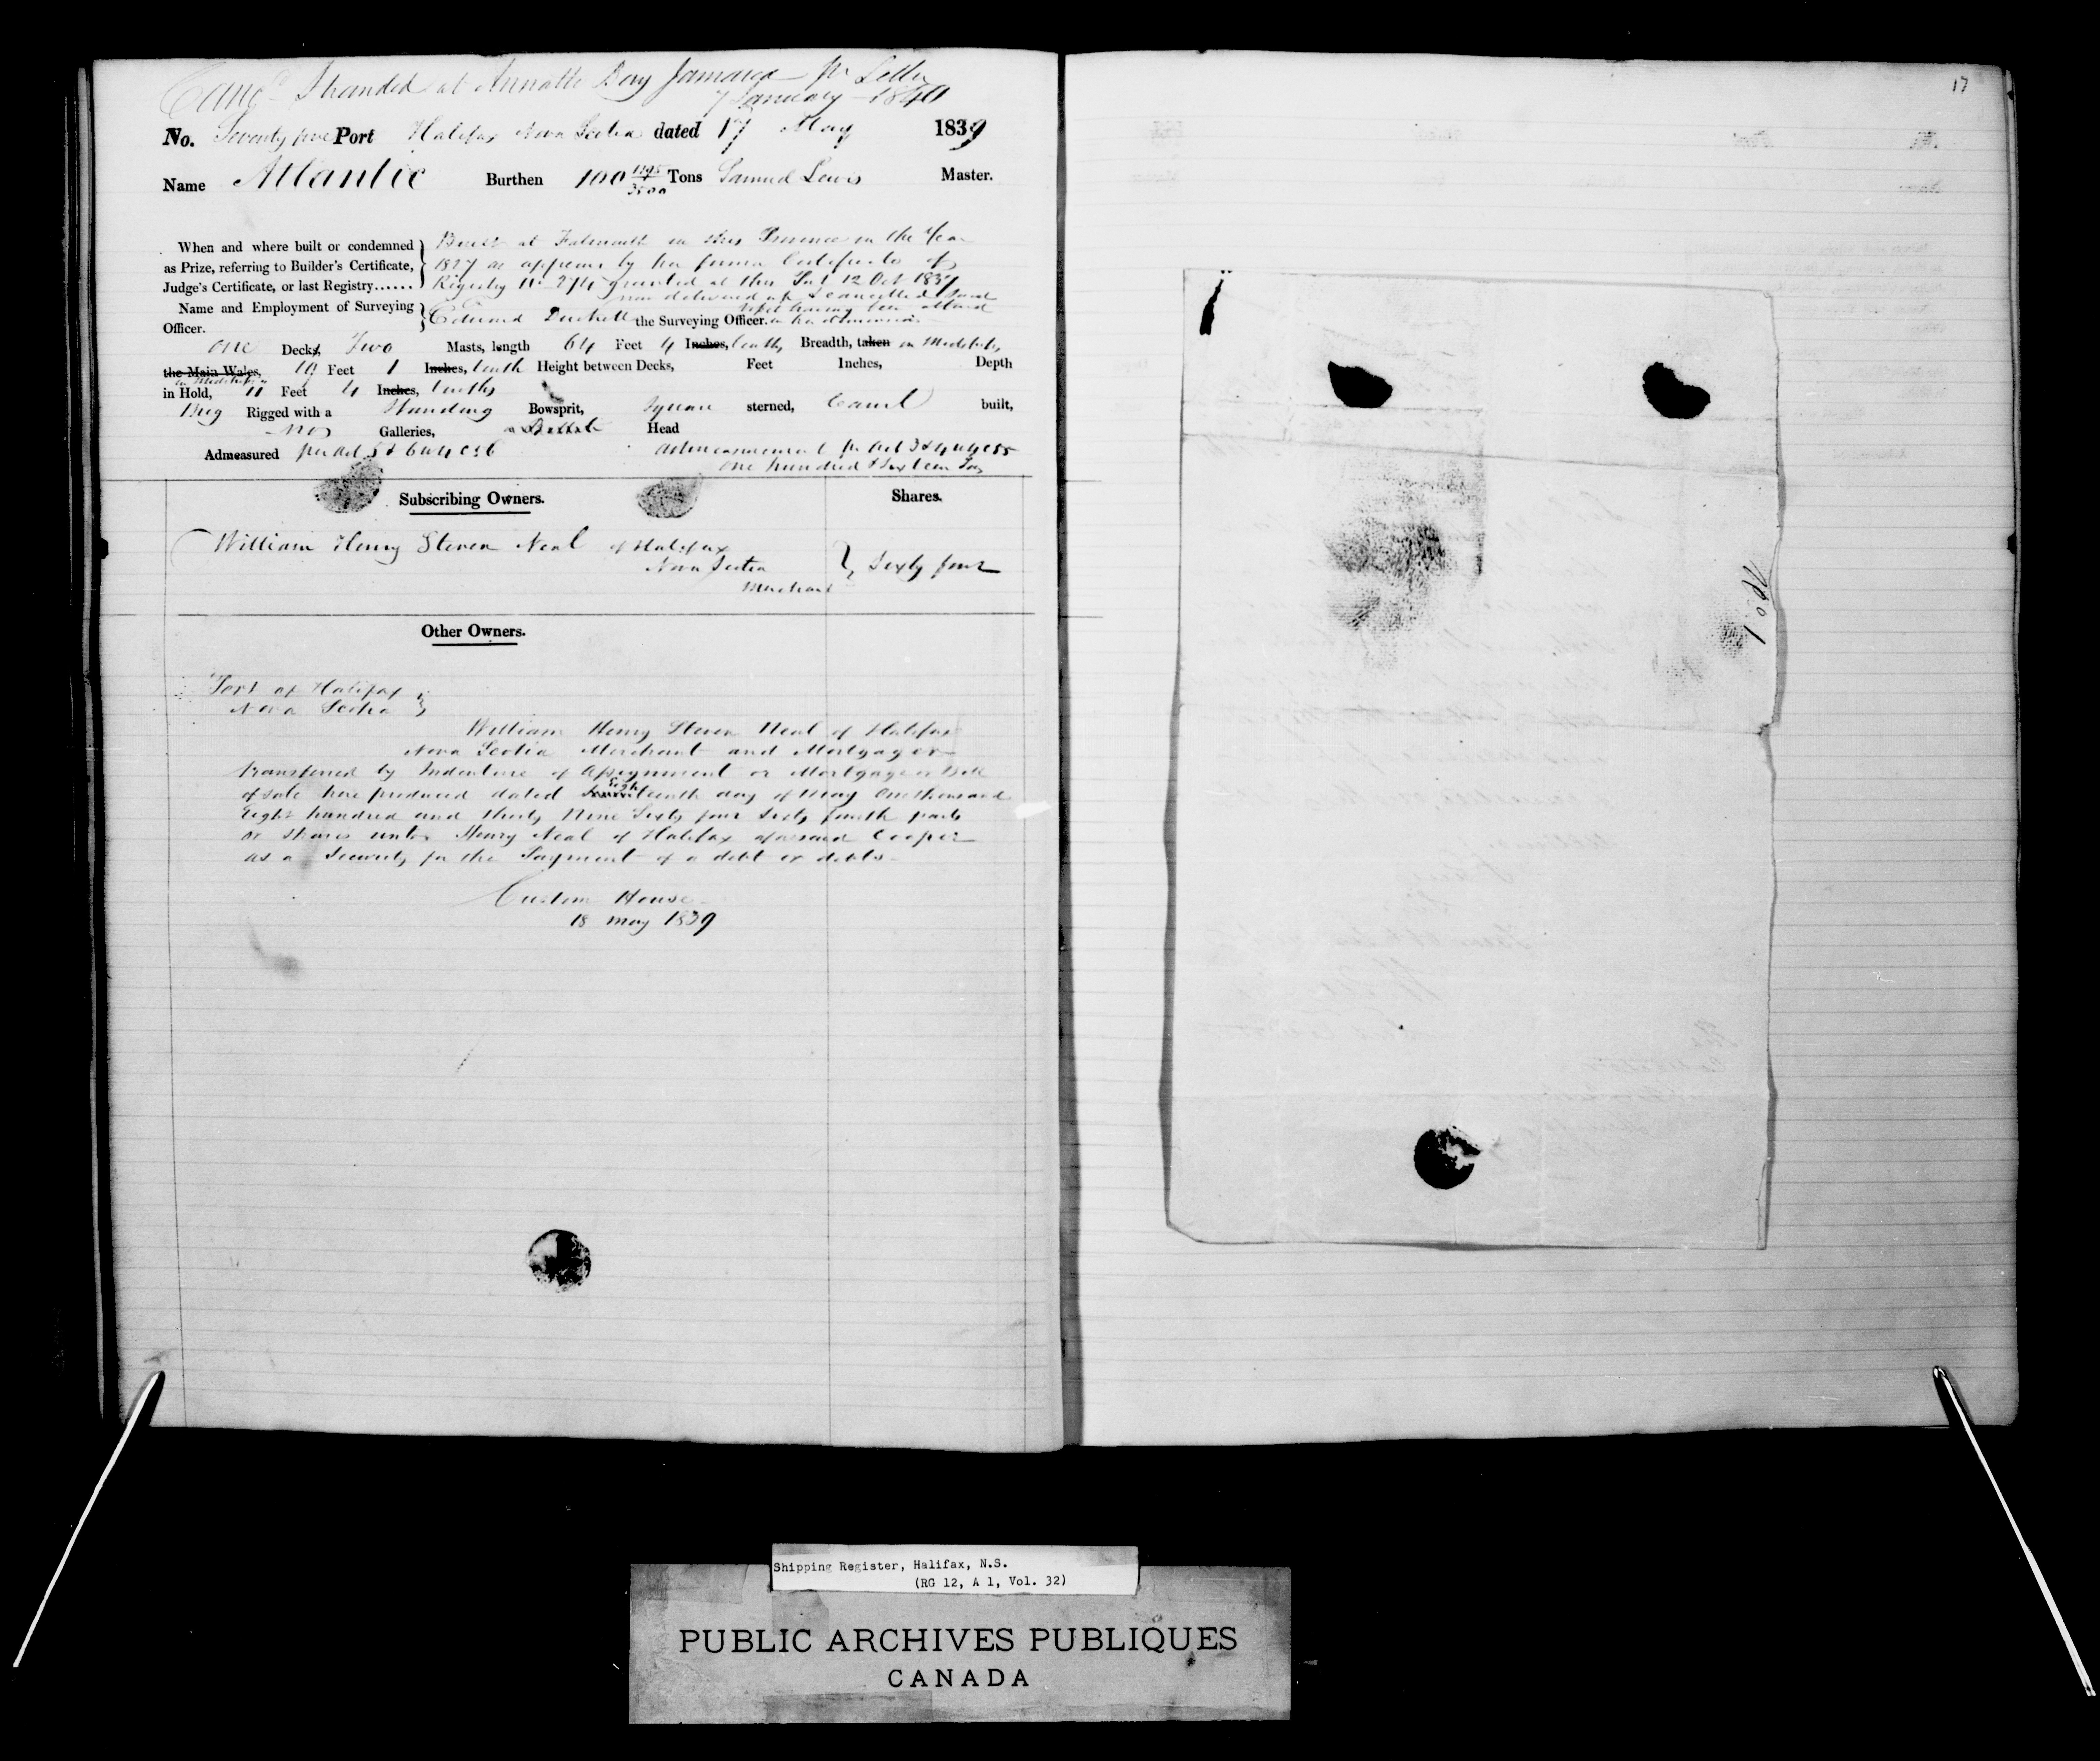 Canc.d Stranded at Annatto Bay Jamaica pr Letter
7 January 1840
No. Seventy five Port Halifax Nova Scotia dated 17 May 1839
Name Atlantic Burthen 100 1195/3500 Tons Samuel Lewis Master.
When and where built or condemned as Prize, referring to Builder's Certificate, Judge's Certificate, or last Registry......
Built at Falmouth in this Province in the Year
1837 as appears by her former Certificate of
Registry No 274 granted at this Port 12 Oct 1837
now delivered up & cancelled said
Vessel having been altered
in her dimensions
Name and Employment of Surveying Officer. Edward the Surveying Officer.
One Decks, Two Masts, length 64 Feet 4 Inches, tenths Breadth, taken in Midships
the Main Wales, 19 Feet 1 Inches, tenth Height between Decks, Feet Inches, Depth
in Midships
in Hold, 11 Feet 4 Inches, tenths
Brig Rigged with a Standing Bowsprit, square sterned, Carvel built,
no Galleries, a Head
Admeasured per Act 5 & 6 W 4 c 56
Admeasurement pr Act 3 & 4 W 4 c 55
One hundred & sixteen Tons
Subscribing Owners. Shares.
William Henry Steven Neal of Halifax
Nova Scotia
Merchant
Sixty four
Other Owners.
Port of Halifax
Nova Scotia
William Henry Steven Neal of Halifax
Nova Scotia Merchant and Mortgager
transferred by Indenture of Assignment or Mortgage or Bill
of sale here produced dated Eighteenth day of May One thousand
Eight hundred and thirty Nine Sixty four Sixty fourth parts
or shares unto Henry Neal of Halifax aforesaid Cooper
as a Security for the Payment of a debt or debts
Custom House
18 May 1839
17
Shipping Register, Halifax, N.S.
(RG 12, A 1, Vol. 32)
PUBLIC ARCHIVES PUBLIQUES
CANADA